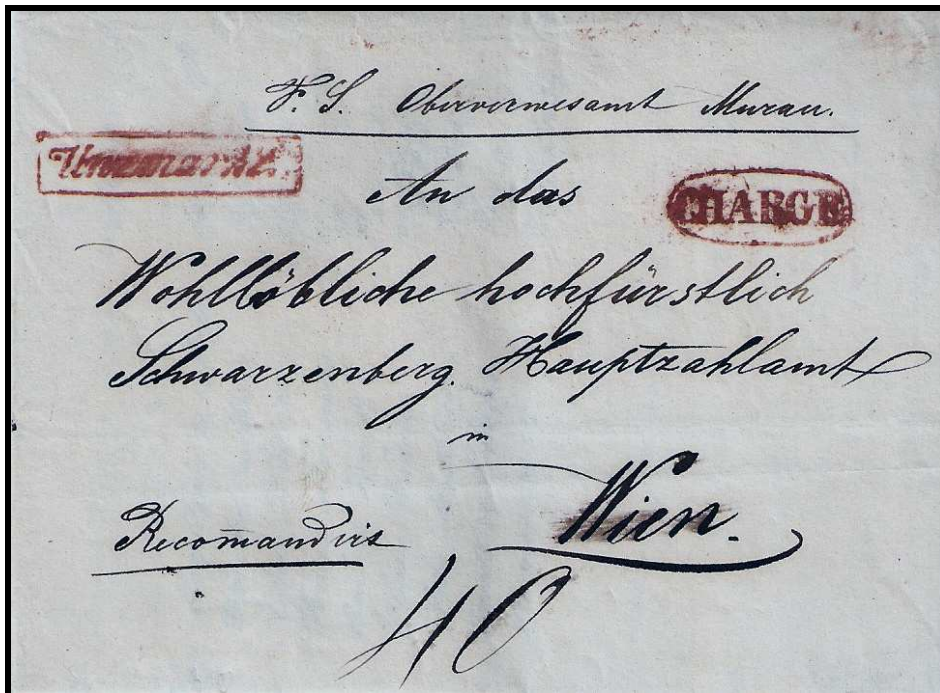 F. S. Oberverwesamt Murau.
Unzmarkt.
An das
CHARGE
Wohllöbliche hochfürstlich
Schwarzenberg. Hauptzahlamt
in
Wien.
Recom̄andirt
40